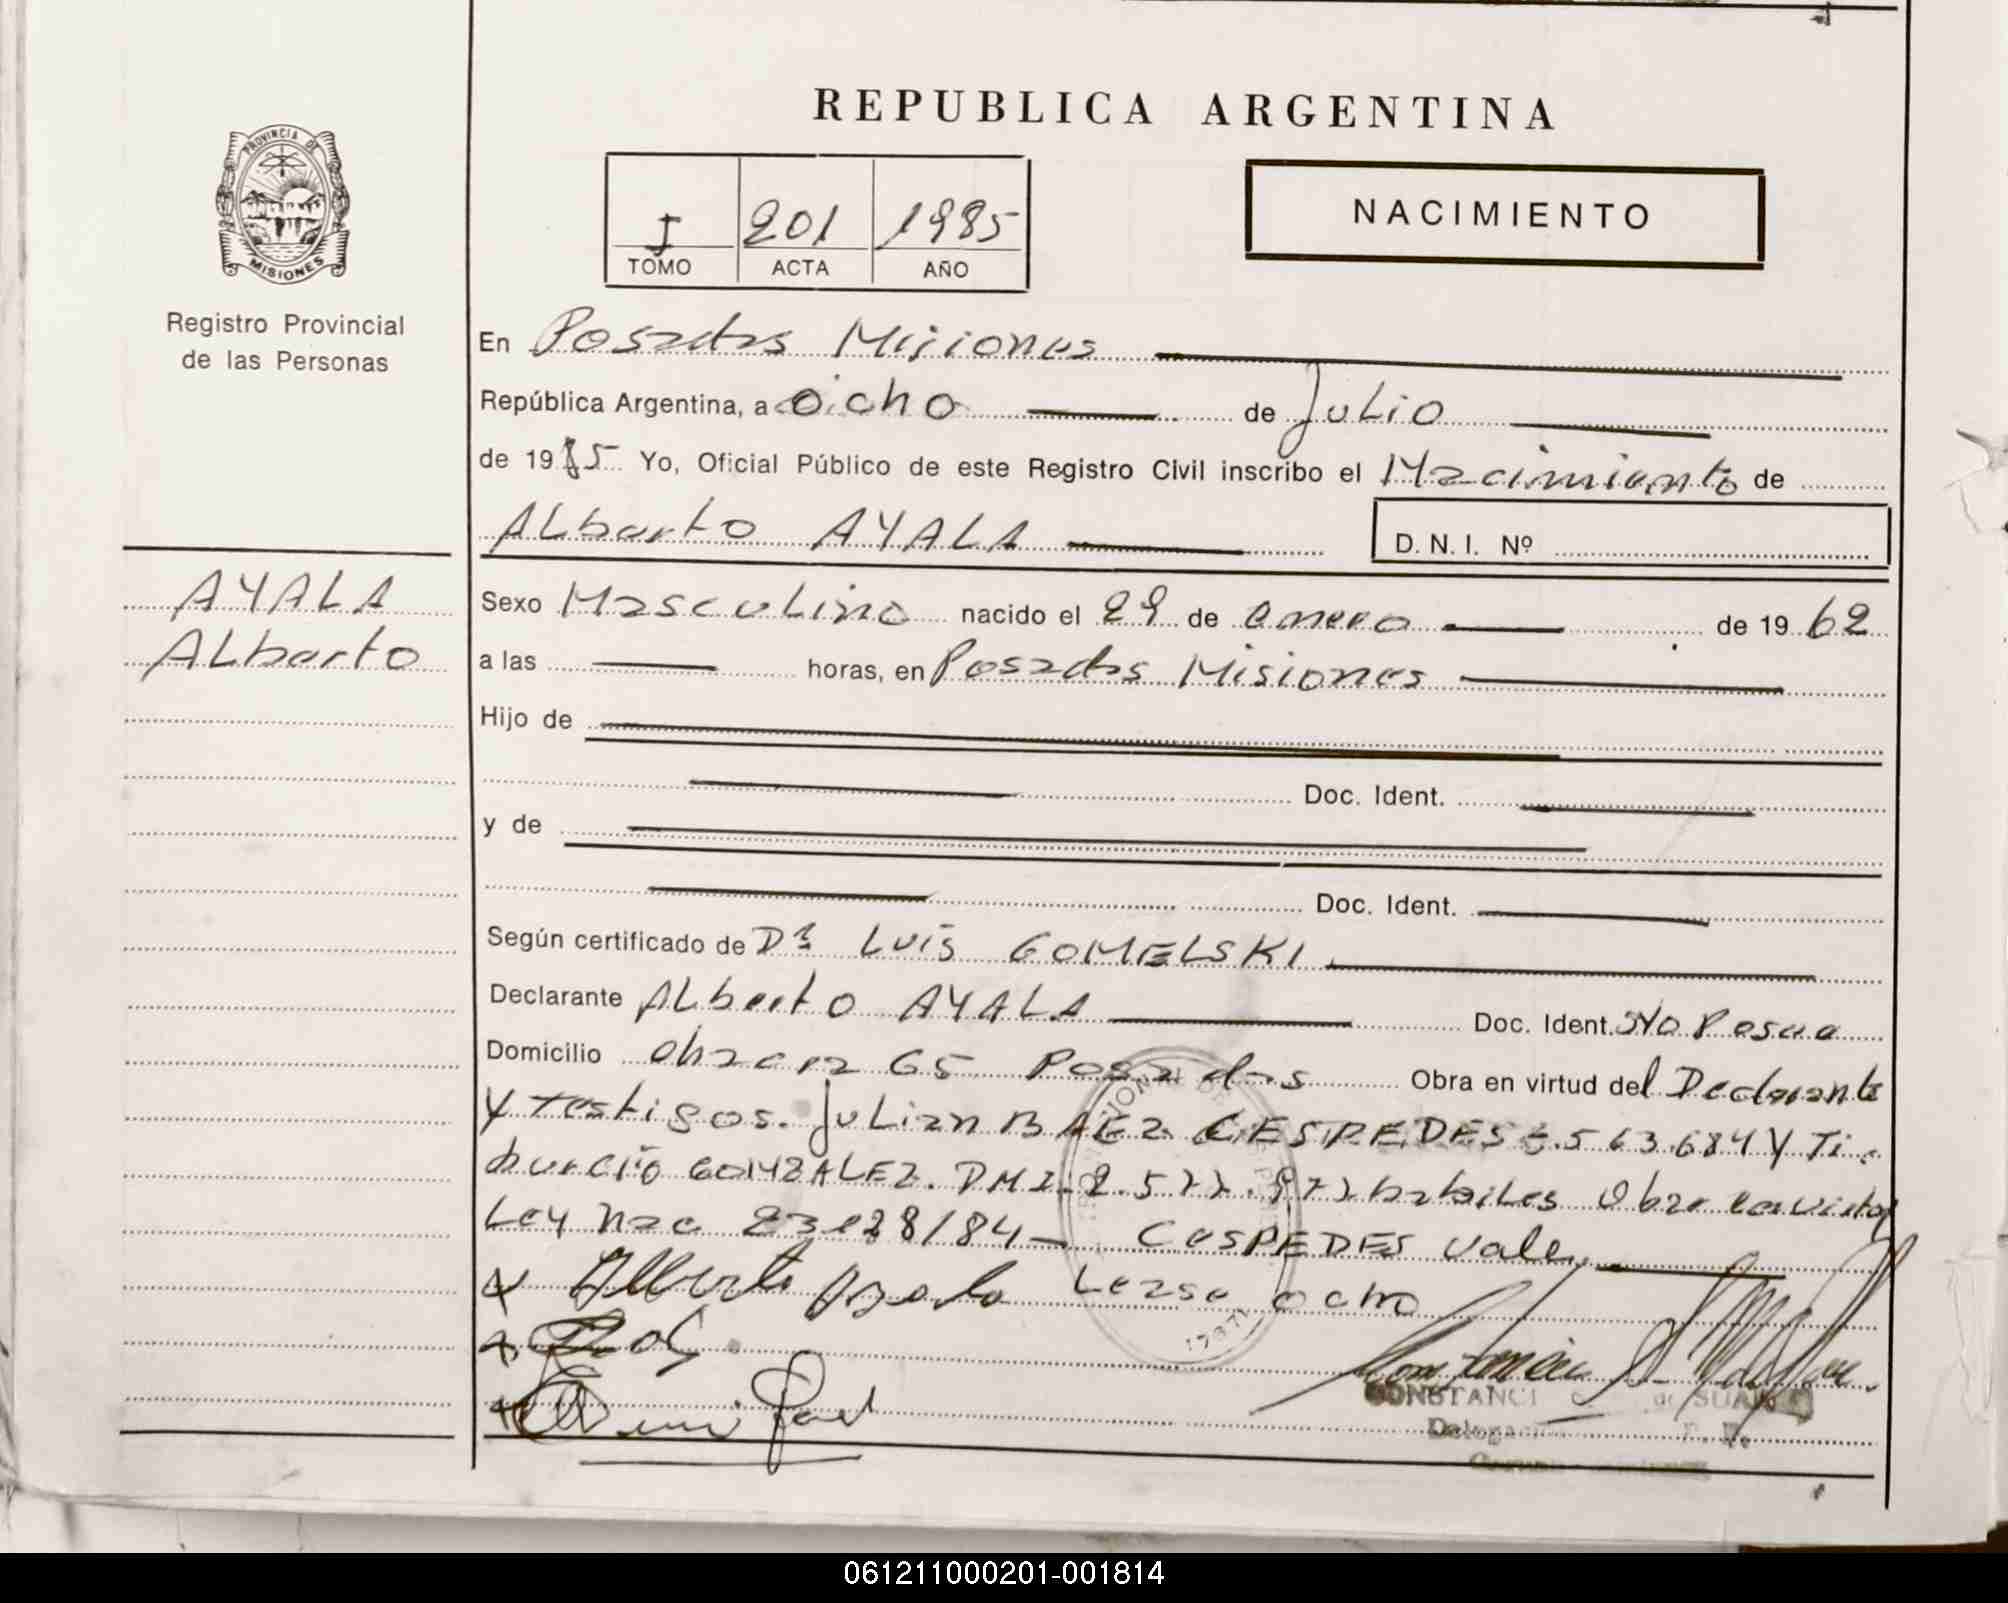 REPUBLICA ARGENTINA
PROVINCIA DE
MISIONES
Registro Provincial
de las Personas
I 201 1985
TOMO ACTA AÑO
NACIMIENTO
En Posadas Misiones
República Argentina, a ocho de Julio
de 1985 Yo, Oficial Público de este Registro Civil inscribo el Nacimiento de
Alberto AYALA
D. N. I. Nº
AYALA
Alberto
Sexo Masculino nacido el 29 de enero de 1962
a las horas, en Posadas Misiones
Hijo de
Doc. Ident.
y de
Doc. Ident.
Según certificado de Dr Luis GOMELSKI
Declarante Alberto AYALA Doc. Ident. No Posee
Domicilio chacra 65 Posadas Obra en virtud del Declarante
y testigos. Julian BAEZ CESPEDES 5.563.684 y Ti
burcio GONZALEZ. DNI 2.577. habiles Obra
Ley Nac 23128/84 CESPEDES vale
Alberto Ayala ocho
CONSTANCI de SUA
Delegac
061211000201-001814